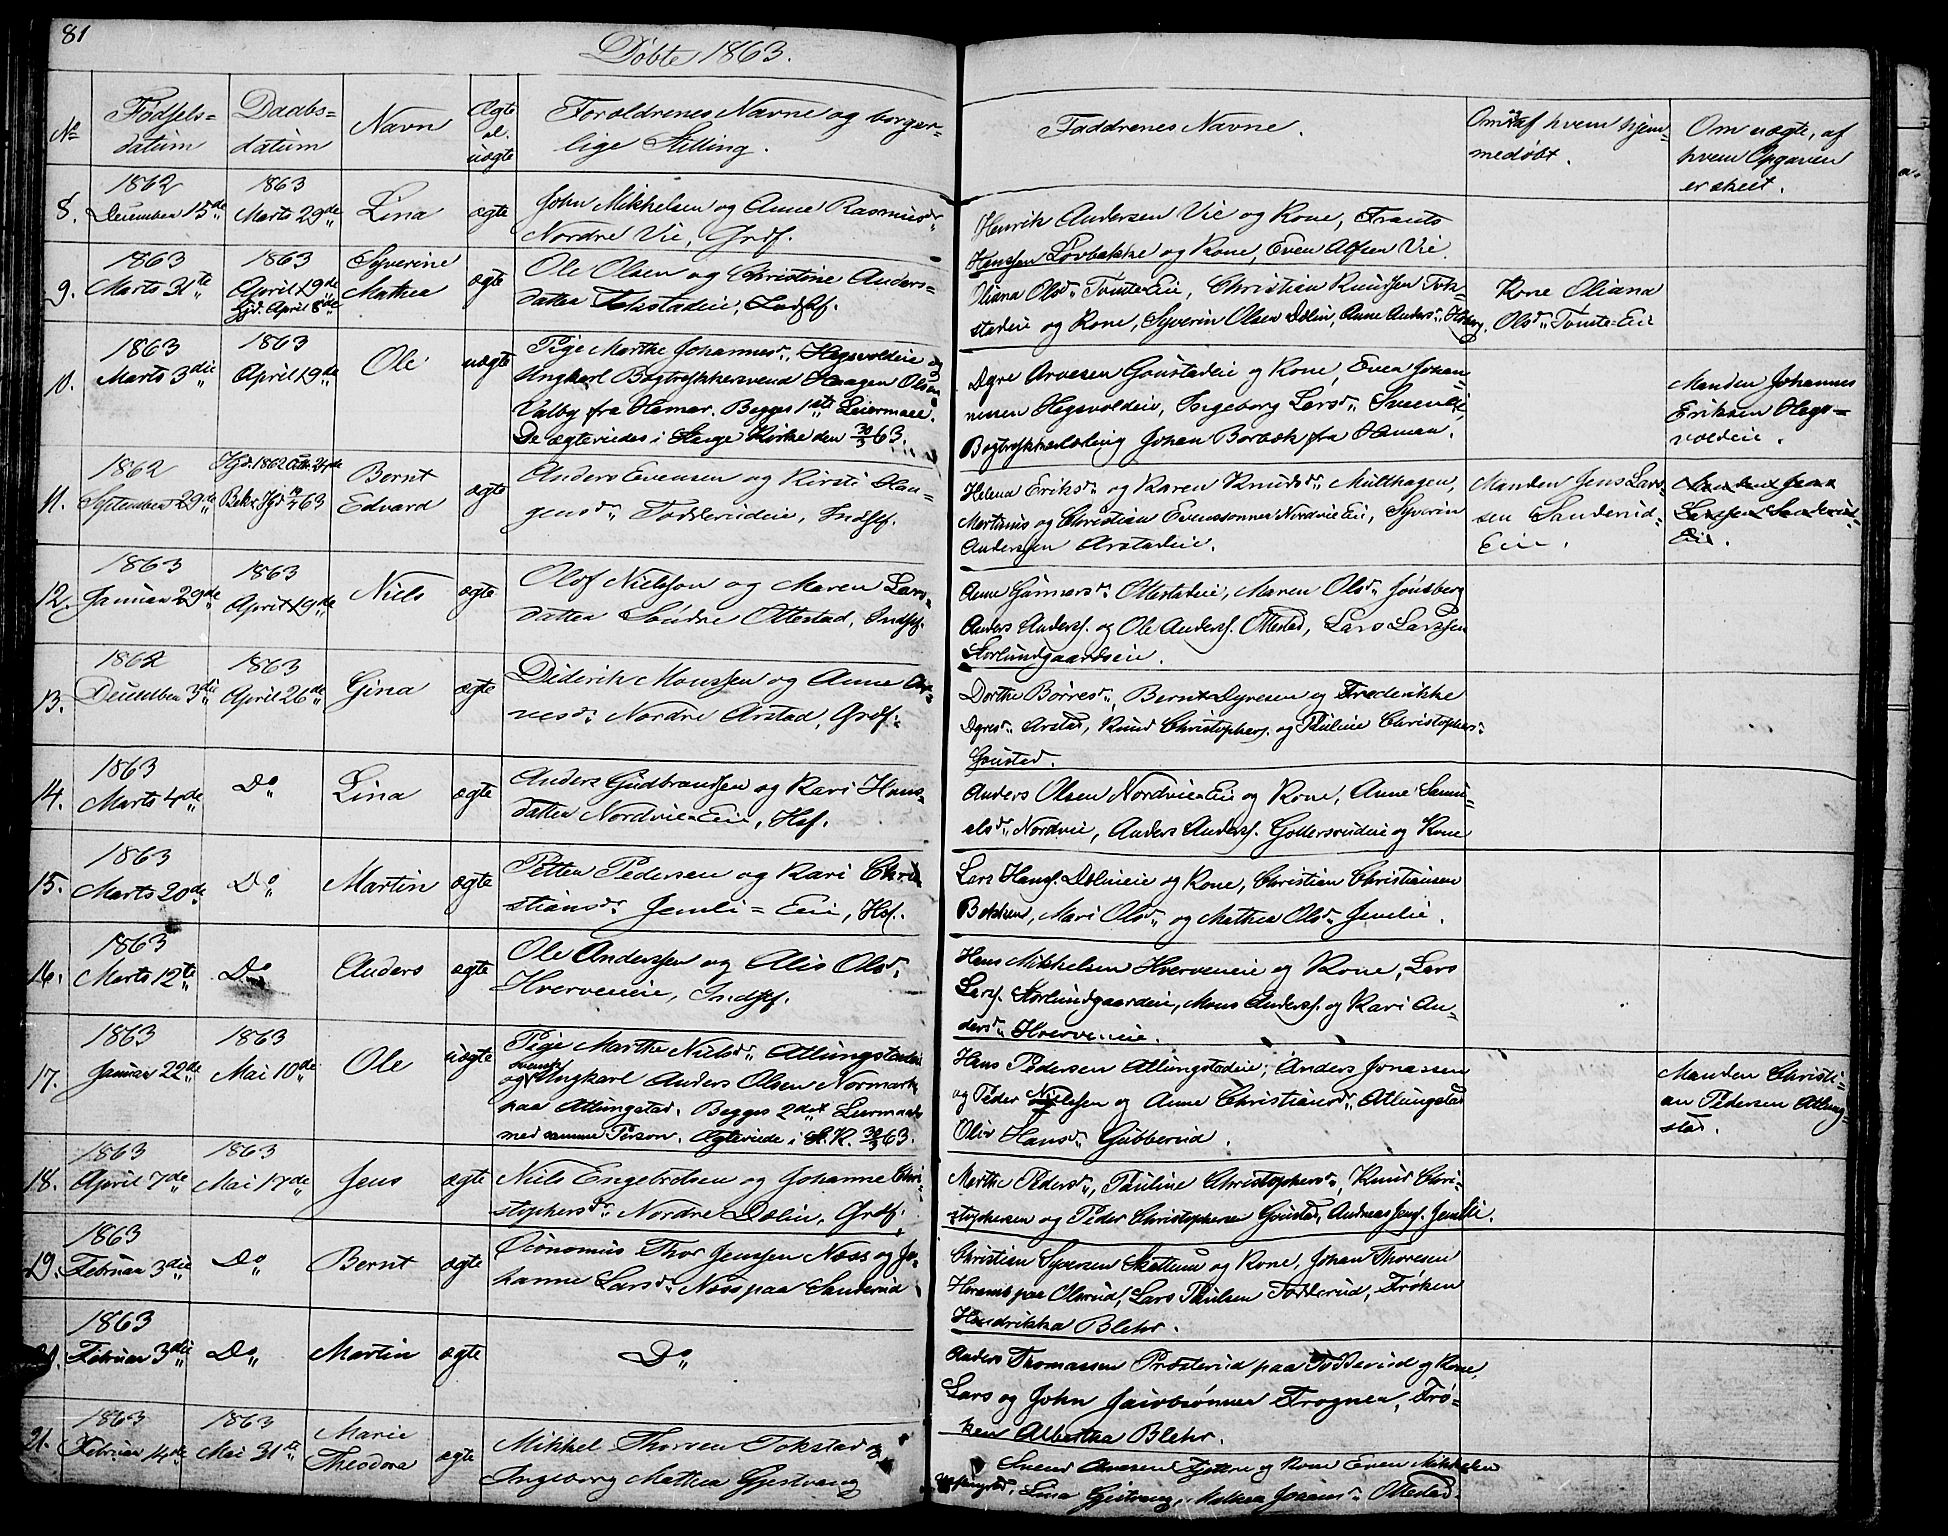 81
Døbte 1863.
No
Fødsels=
datum
Daabs=
datum
Navn
Ægte
el.
uægte
Forældrenes Navne og borger=
lige Stilling.
Faddrenes Navne.
Om og af hvem hjem=
medøbt.
Om uægte, af
hvem Opgaven
er skeet.
8.
1862
December 15de
1863
Marts 29de
Lina
ægte
John Mikkelsen og Anne Rasmusdr
Nordre Vie, Grdf.
Henrik Andersen Vie og Kone, Frants
Hanssen Lovbakke og Kone, Even Alfsen Vie.
9.
1863
Marts 31te
1863
April 19de
Hjd. April 8de
Syverine
Mathea
ægte
Ole Olsen og Christine Anders=
datter Tokstadeie,
Oliana Olsdr Tomte=Eie, Christian Knudsen Tok=
stadeie og Kone, Syverin Olsen Dølin, Anne Andersdr
Kone Oliana
Olsdr Tomte=Eie
10.
1863
Marts 3die
1863
April 19de
Ole
uægte
Pige Marthe Johannesdr, Hegsvoldeie og
Ungkarl Bogtrykkersvend Haagen Olsen
Valby fra Hamar. Begges 1ste Leiermaal.
De ægteviedes i Stange Kirke den 30/3 63.
Dyre Arvesen Goustadeie og Kone, Even Johan=
nesen Hegsvoldeie, Ingeborg Larsdr
Bogtrykkerlærling Johan Borbæk fra Hamar.
Manden Johannes
Eriksen Hegs=
voldeie.
11.
1862
September 29de
Hjd. 1862 Octbr. 24de
Bekr. Hjd 19/4 63
Bernt
Edvard
ægte
Anders Evensen og Kirsti Haa=
gensdr Todderudeie, Indsf.
Helena Eriksdr og Karen Knudsdr Multhagen,
Martinus og Christian Evenssønner Nordvie Eie, Syverin
Anderssen Arstadeie.
Manden Jens Lars=
sen Sanderud=
Eie.
Manden Jens
Larssen Sanderud=
Eie.
12.
1863
Januar 29de
1863
April 19de
Niels
ægte
Olof Nielsson og Maren Lars=
datter Søndre Ottestad, Indsf.
Anne Gunnarsdr Ottestadeie, Maren Olsdr Jønsberg
Anders Anderss. og Ole Anderss. Ottestad, Lars Larssen
Storlundgaardseie.
13.
1862
December 3die
1863
April 26de
Gina
ægte
Diderik Monssen og Anne Ar=
nesdr Nordre Arstad, Grdf.
Dorthe Børresdr, Bernt Dyresen og Frederikke
Dyresdr Arstad, Knud Christophers. og Pauline Christophersdr
Goustad.
14.
1863
Marts 4de
Do
Lina
ægte
Anders Gudbrandsen og Kari Hans=
datter Nordvie=Eie, Hsf.
Anders Olsen Nordvie=Eie og Kone, Anne Samu=
elsdr Nordvie, Anders Anderss. Gottersrudeie og Kone
15.
1863
Marts 20de
Do
Martin
ægte
Petter Pedersen og Kari Chri=
stiansdr Jemli=Eie, Hsf.
Lars Hanss. Dølineie og Kone, Christian Christiansen
Bækken, Mari Olsdr og Mathea Olsdr Jemlie.
16.
1863
Marts 12te
Do
Anders
ægte
Ole Anderssen og Alis Olsdr
Hverveneie, Indsf.
Hans Mikkelsen Hverveneie og Kone, Lars
Larss. Storlundgaardeie, Mons Anderss. og Kari An=
dersdr Hverveneie.
17.
1863
Januar 22de
1863
Mai 10de
Ole
uægte
Pige Marthe Nielsdr Atlungstadeie
og svenske Ungkarl Anders Olsen Normark
paa Atlungstad. Begges 2det Leiermaal
med samme Person. Ægteviede i S. K. 30/3 63.
Hans Pedersen Atlungstadeie, Anders Jonassen
og Peder Nielssen og Anne Christiansdr Atlungstad
Oliv Hansdr Gubberud.
Manden Christi=
an Pedersen Atlung=
stad.
18.
1863
April 7de
1863
Mai 17de
Jens
ægte
Niels Engebretsen og Johanne Chri=
stophersdr Nordre Dølin, Grdf.
Marthe Pedersdr, Pauline Christophersdr, Knud Chri=
stophersen og Peder Christophersen Goustad, Andreas Jens. Jemlie.
19.
1863
Februar 3die
Do
Bernt
ægte
Oeconomus Thor Jenssen Næss og Jo=
hanne Larsdr Næss paa Sanderud
Christian Syversen Skettum og Kone, Johan Thoresen
Horsmo paa Olsrud, Lars Paulsen Todderud, Frøken
Hendrikka Blehr.
20.
1863
Februar 3die
Do
Martin
ægte
Do
Anders Thomassen Præsterud paa Todderud og Kone,
Lars og John Jacobsønner Frogner, Frø=
ken Albertha Blehr.
21.
1863
Februar 14de
1863
Mai 31te
Marie
Theodora
ægte
Mikkel Thorsen Tokstad og
Ingeborg Mathea Gjestvang
Svend Arnesen Gjettre og Kone Even Mikkelsen
Lina Gjestvang, Mathea Ottestad.